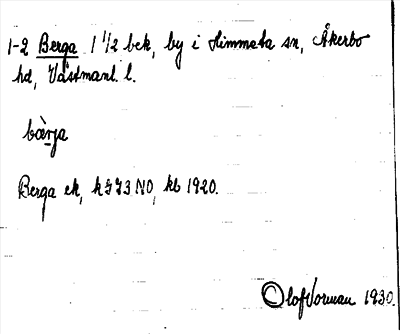 1-2 Berga 1 1/2 bek, by i Himmeta sn, Åkerbo
hd, Västmanl. l.
bærja
Berga ek, h J J3 NO, kb 1920.
Olof Vorman 1930.